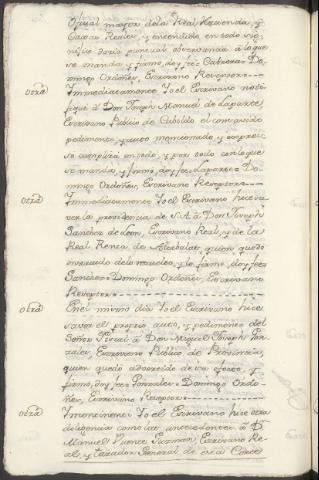 Oficial mayor de la Real Hazienda, y
Caxas Reales, y entendido en todo vio,
daria puntual observancia à lo que
se manda y firmó, doy feè: Cabrera = Do-
mingo Ordoñes, Escrivano Receptor
Otra
Immediatamente Yo el Escrivano noti-
fiqué à Don Joseph Manuel de Laparte
Escrivano Publico de Cabildo el
pedimento, y auto mencionado, y
se cumplirá en todo, y por todo con lo que
se manda, y firmó, doy feè: Laparte = Do-
mingo Ordoñes, Escrivano Receptor
Otra
Immediatamente Yo el Escrivano hize sa-
ver la providencia de S.A. à Don Joseph
Sanchez de Leon, Escrivano Real, y de la
Real Renta de Alcabalas, quien quedó
enterado de lo mandado, y lo firmó, doy feè:
Sanchez = Domingo Ordoñes, Escrivano
Receptor
Otra
En el mismo dia Yo el Escrivano hize
saver el propio auto, y pedimento del
Señor Fiscal à Don Miguel Joseph Gon-
zalez, Escrivano Publico de Provincia,
quien quedó advertido de su efecto, y
firmó, doy feè: Gonzalez = Domingo Ordo-
ñes, Escrivano Receptor
Otra
Incontinenti Yo el Escrivano hize otra
diligencia como las antecedentes à D.
Manuel Puente Guzman, Escrivano Re-
al, y Tasador General de esta Corte